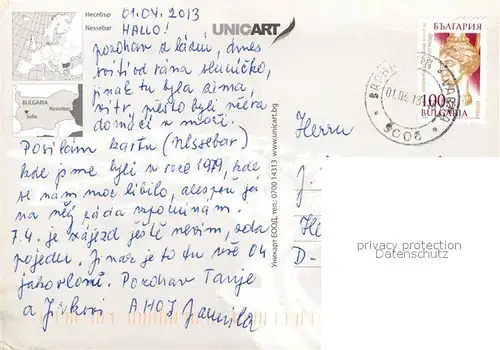 Несебър
Nessebar
UNICART
BULGARIA
Nessebar
Sofia
01.04.2013
HALLO!
pozdrav z lázní, dnes
svítí od rána sluníčko,
jinak tu byla zima,
vítr, někteří byli včera
domácí v moři.
Posílám kartu (Nessebar)
kde jsme byli v roce 1979, kde
se nám moc líbilo, alespoň já
na něj ráda vzpomínám.
7.4. je zájezd ještě nevím, zda
pojedu. Jinak je to tu vše O4
jako loni. Pozdrav Tanje
a Jirkovi AHOJ Jamila
Уникарт ЕООД, тел.: 0700 14313 www.unicart.bg
БЪЛГАРИЯ
100
BULGARIA
01.04.13
9006
Herrn
J.
H
D-
privacy protection
Datenschutz